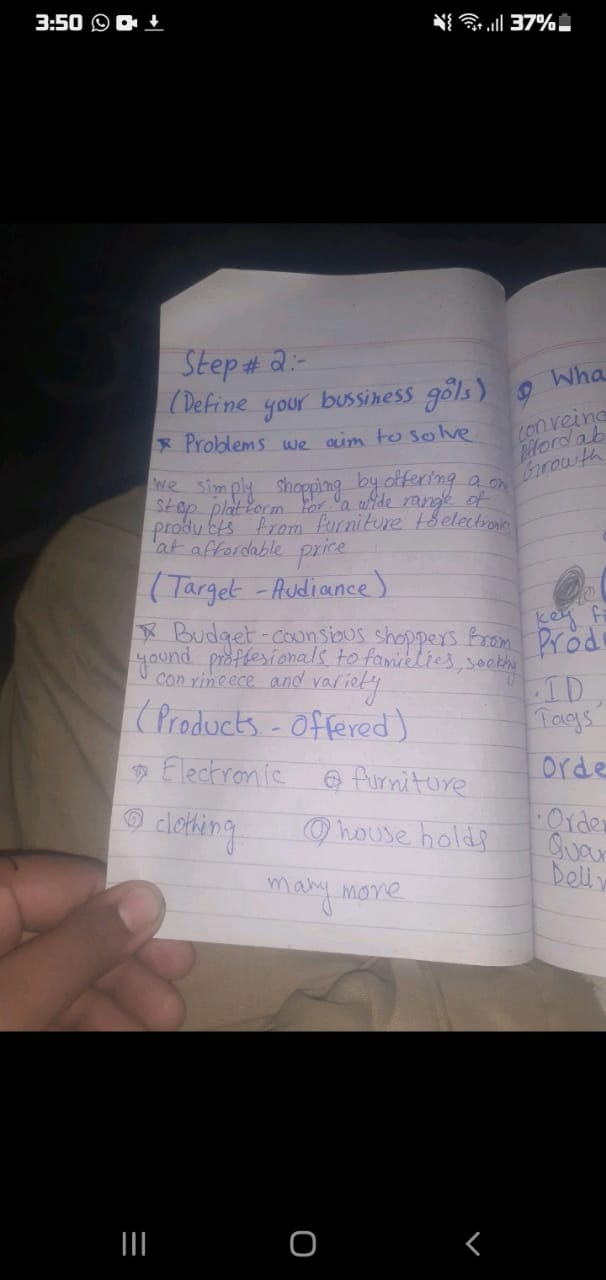 3:50
37%
Step # 2:-
(Define your bussiness gols)
Problems we aim to solve
we simply shopping by offering a on
stop platform for a wide range of
products from furniture to electronic
at affordable price
(Target - Audiance)
Budget - counsious shoppers from
yound proffesionals to famielies, seekhg
convineece and variety
(Products - Offered)
Electronic furniture
clothing house holds
many more
Wha
conveinc
Affordab
Growth
key f
Produ
· ID
Tags
Orde
· Order
Quan
Deliv